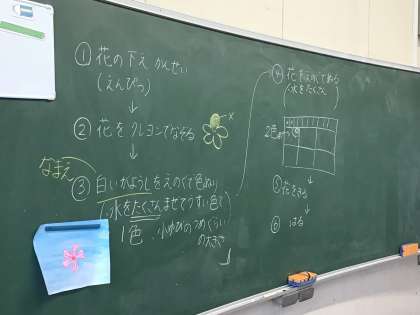 ① 花の下え かんせい
(えんぴつ)
↓
② 花をクレヨンでなぞる
↓
なまえ
③ 白いがようしをえのぐで色ぬり
(水をたくさんまぜてうすい色で)
1色
小ゆびのつめくらい
の大きさ
④ 花をえのぐでぬる
(水をたくさん)
2色
↓
⑤ 花をきる
↓
⑥ はる